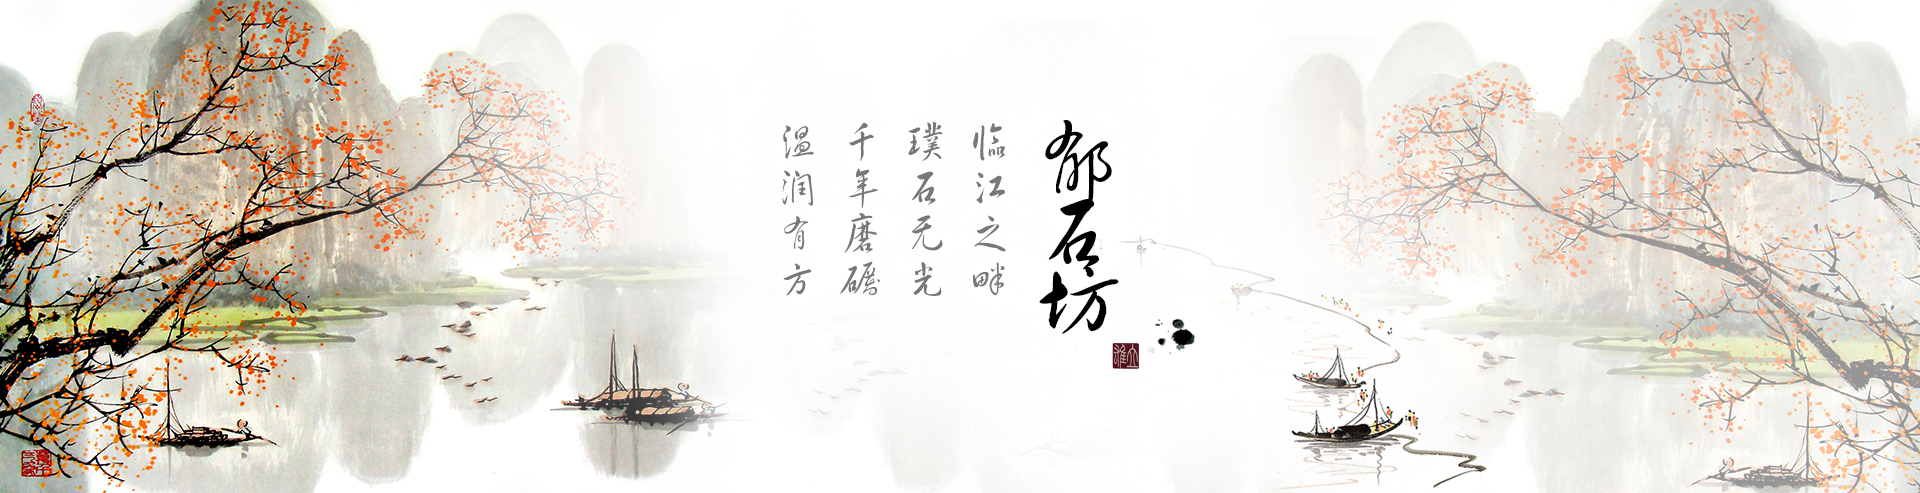 郁石坊
临江之畔
璞石无光
千年磨礪
温润有方